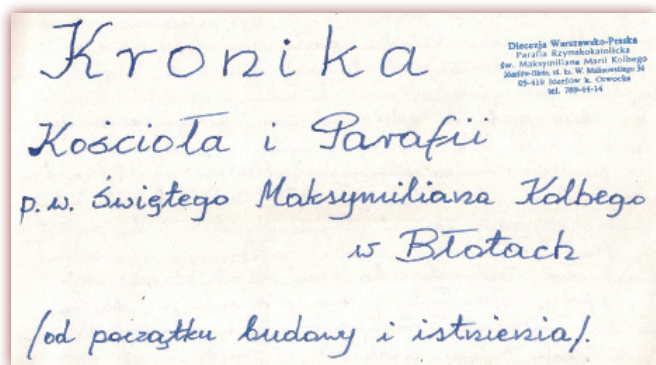 Kronika
Diecezja Warszawsko-Praska
Parafia Rzymskokatolicka
św. Maksymiliana Marii Kolbego
05-410 Józefów k. Otwocka
tel. 789-44-14
Kościoła i Parafii
p.w. Świętego Maksymiliana Kolbego
w Błotach
/od początku budowy i istnienia/.